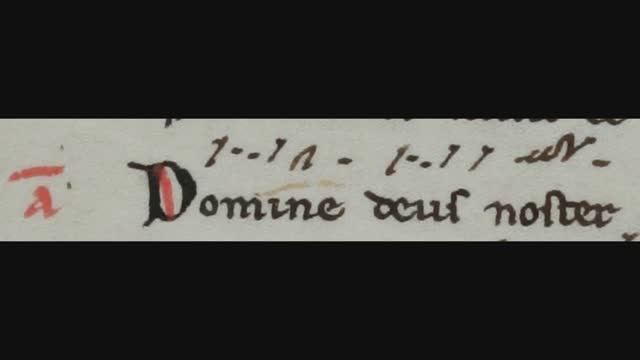 a Domine deus noster